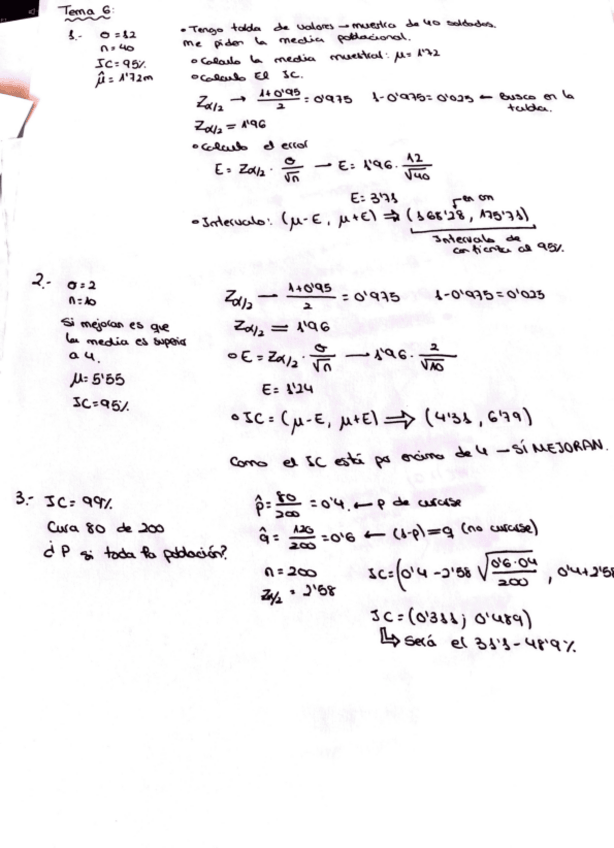 Tema 6:
1.- σ=12
n=40
IC=95%
μ̂=1'72m
• Tengo tabla de valores → muestra de 40 soldados.
me piden la media poblacional.
• Calculo la media muestral: μ=1'72
• Calculo El IC.
Zα/2 → (1+0'95)/2 = 0'975 1-0'975=0'025 ← Busco en la tabla.
Zα/2 = 1'96
• Calculo el error
E = Zα/2 · σ/√n → E = 1'96 · 12/√40
E = 3'71
en cm
• Intervalo: (μ-E, μ+E) ⇒ (168'28, 175'71)
Intervalo de
confianza al 95%.
2.- σ=2
n=10
Si mejoran es que
la media es superior
a 4.
μ=5'55
IC=95%
Zα/2 — (1+0'95)/2 = 0'975 1-0'975=0'025
Zα/2 = 1'96
• E = Zα/2 · σ/√n → 1'96 · 2/√10
E = 1'24
• IC = (μ-E, μ+E) ⇒ (4'31, 6'79)
Como el IC está por encima de 4 — SÍ MEJORAN.
3.- IC=99%
Cura 80 de 200
¿P si toda la población?
p̂ = 80/200 = 0'4. ← P de curarse
q̂ = 120/200 = 0'6 ← (1-p)=q (no curarse)
n=200
Zα/2 = 2'58
IC = (0'4 - 2'58 √(0'6·0'4/200), 0'4+2'58
IC = (0'311; 0'489)
↳ Será el 31'1 - 48'9%